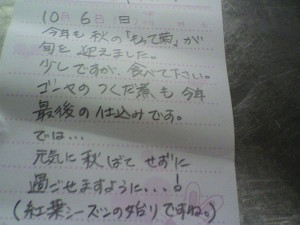 10月 6日 日
今年も秋の「もって菊」が
旬を迎えました。
少しですが、食べて下さい。
ゴーヤのつくだ煮も今年
最後の仕込みです。
では...
元気に秋ばてせずに
過ごせますように...!
(紅葉シーズンの始りですね。)